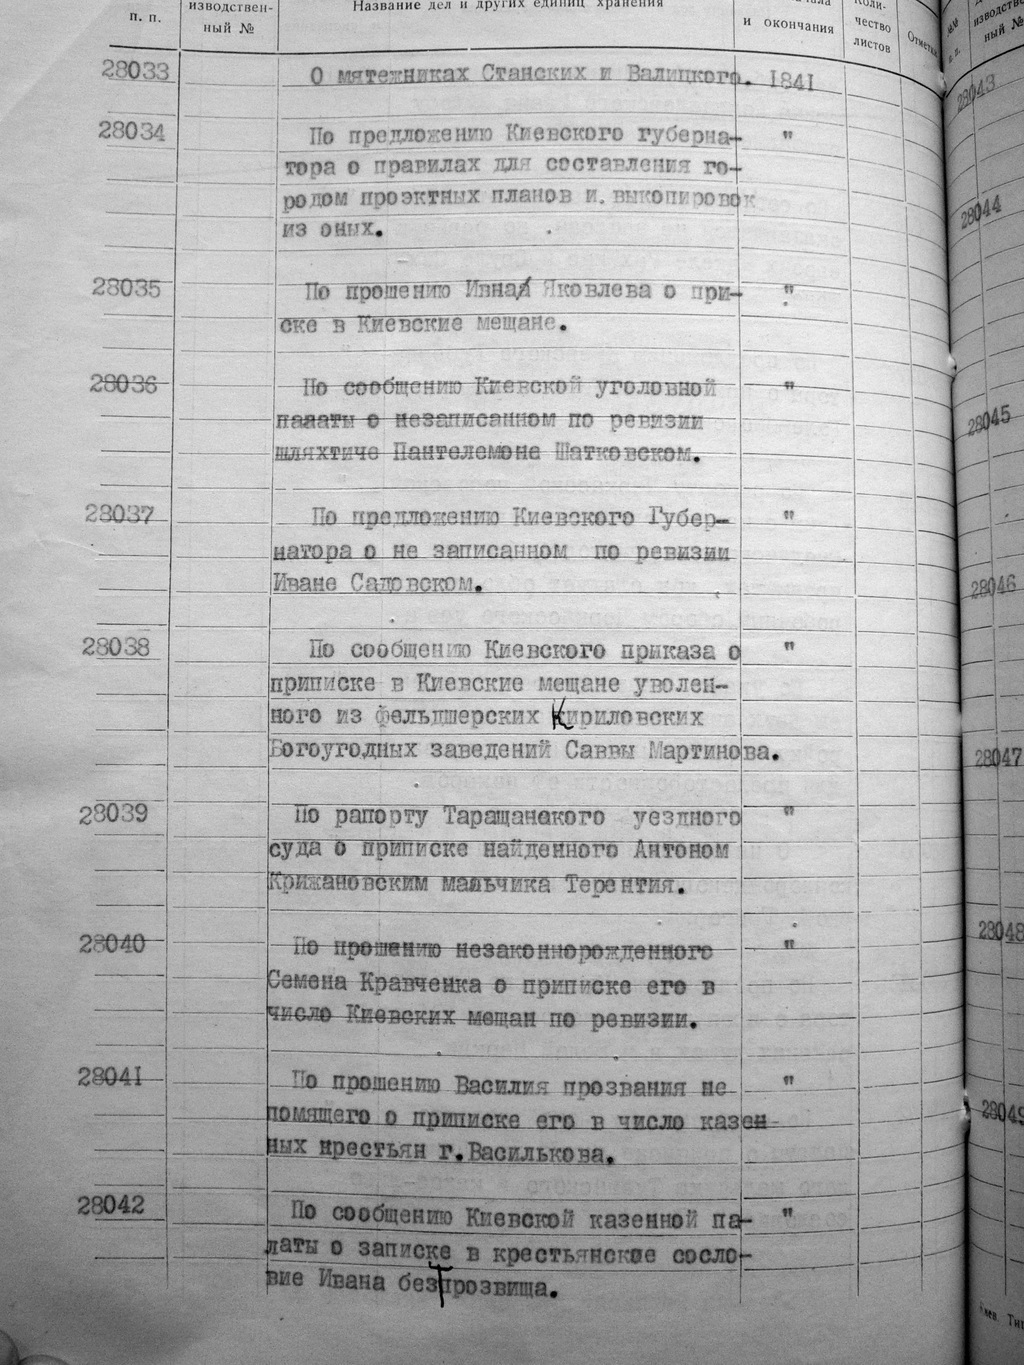 п. п.
изводствен-
ный №
Название дел и других единиц хранения
и окончания
чество
листов
28033 О мятежниках Станских и Валицкого. 1841
28034 По предложению Киевского губерна- "
тора о правилах для составления го-
родом проэктных планов и выкопировок
из оных.
28035 По прошению Ивна Яковлева о при- "
ске в Киевские мещане.
28036 По сообщению Киевской уголовной "
палаты о незаписанном по ревизии
шляхтиче Пантелемоне Шатковском.
28037 По предложению Киевского Губер- "
натора о не записанном по ревизии
Иване Садовском.
28038 По сообщению Киевского приказа о "
приписке в Киевские мещане уволен-
ного из фельдшерских Кириловских
Богоугодных заведений Саввы Мартинова.
28039 По рапорту Таращанского уездного "
суда о приписке найденного Антоном
Крижановским мальчика Терентия.
28040 По прошению незаконнорожденного "
Семена Кравченка о приписке его в
число Киевских мещан по ревизии.
28041 По прошению Василия прозвания не "
помящего о приписке его в число казен-
ных крестьян г.Василькова.
28042 По сообщению Киевской казенной па- "
латы о записке в крестьянское сосло-
вие Ивана без прозвища.
28043
28044
28045
28046
28047
28048
28049